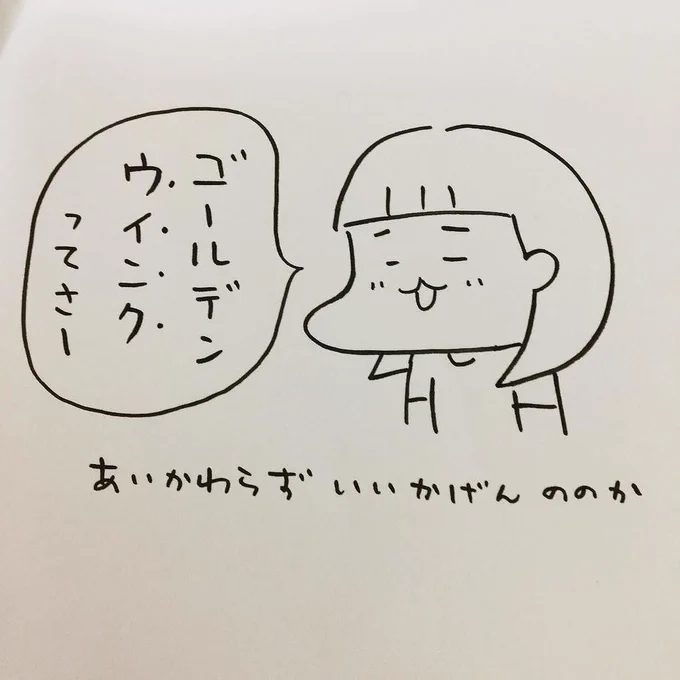 ゴールデン
ウィンク
ってさー
あいかわらず いいかげん ののか